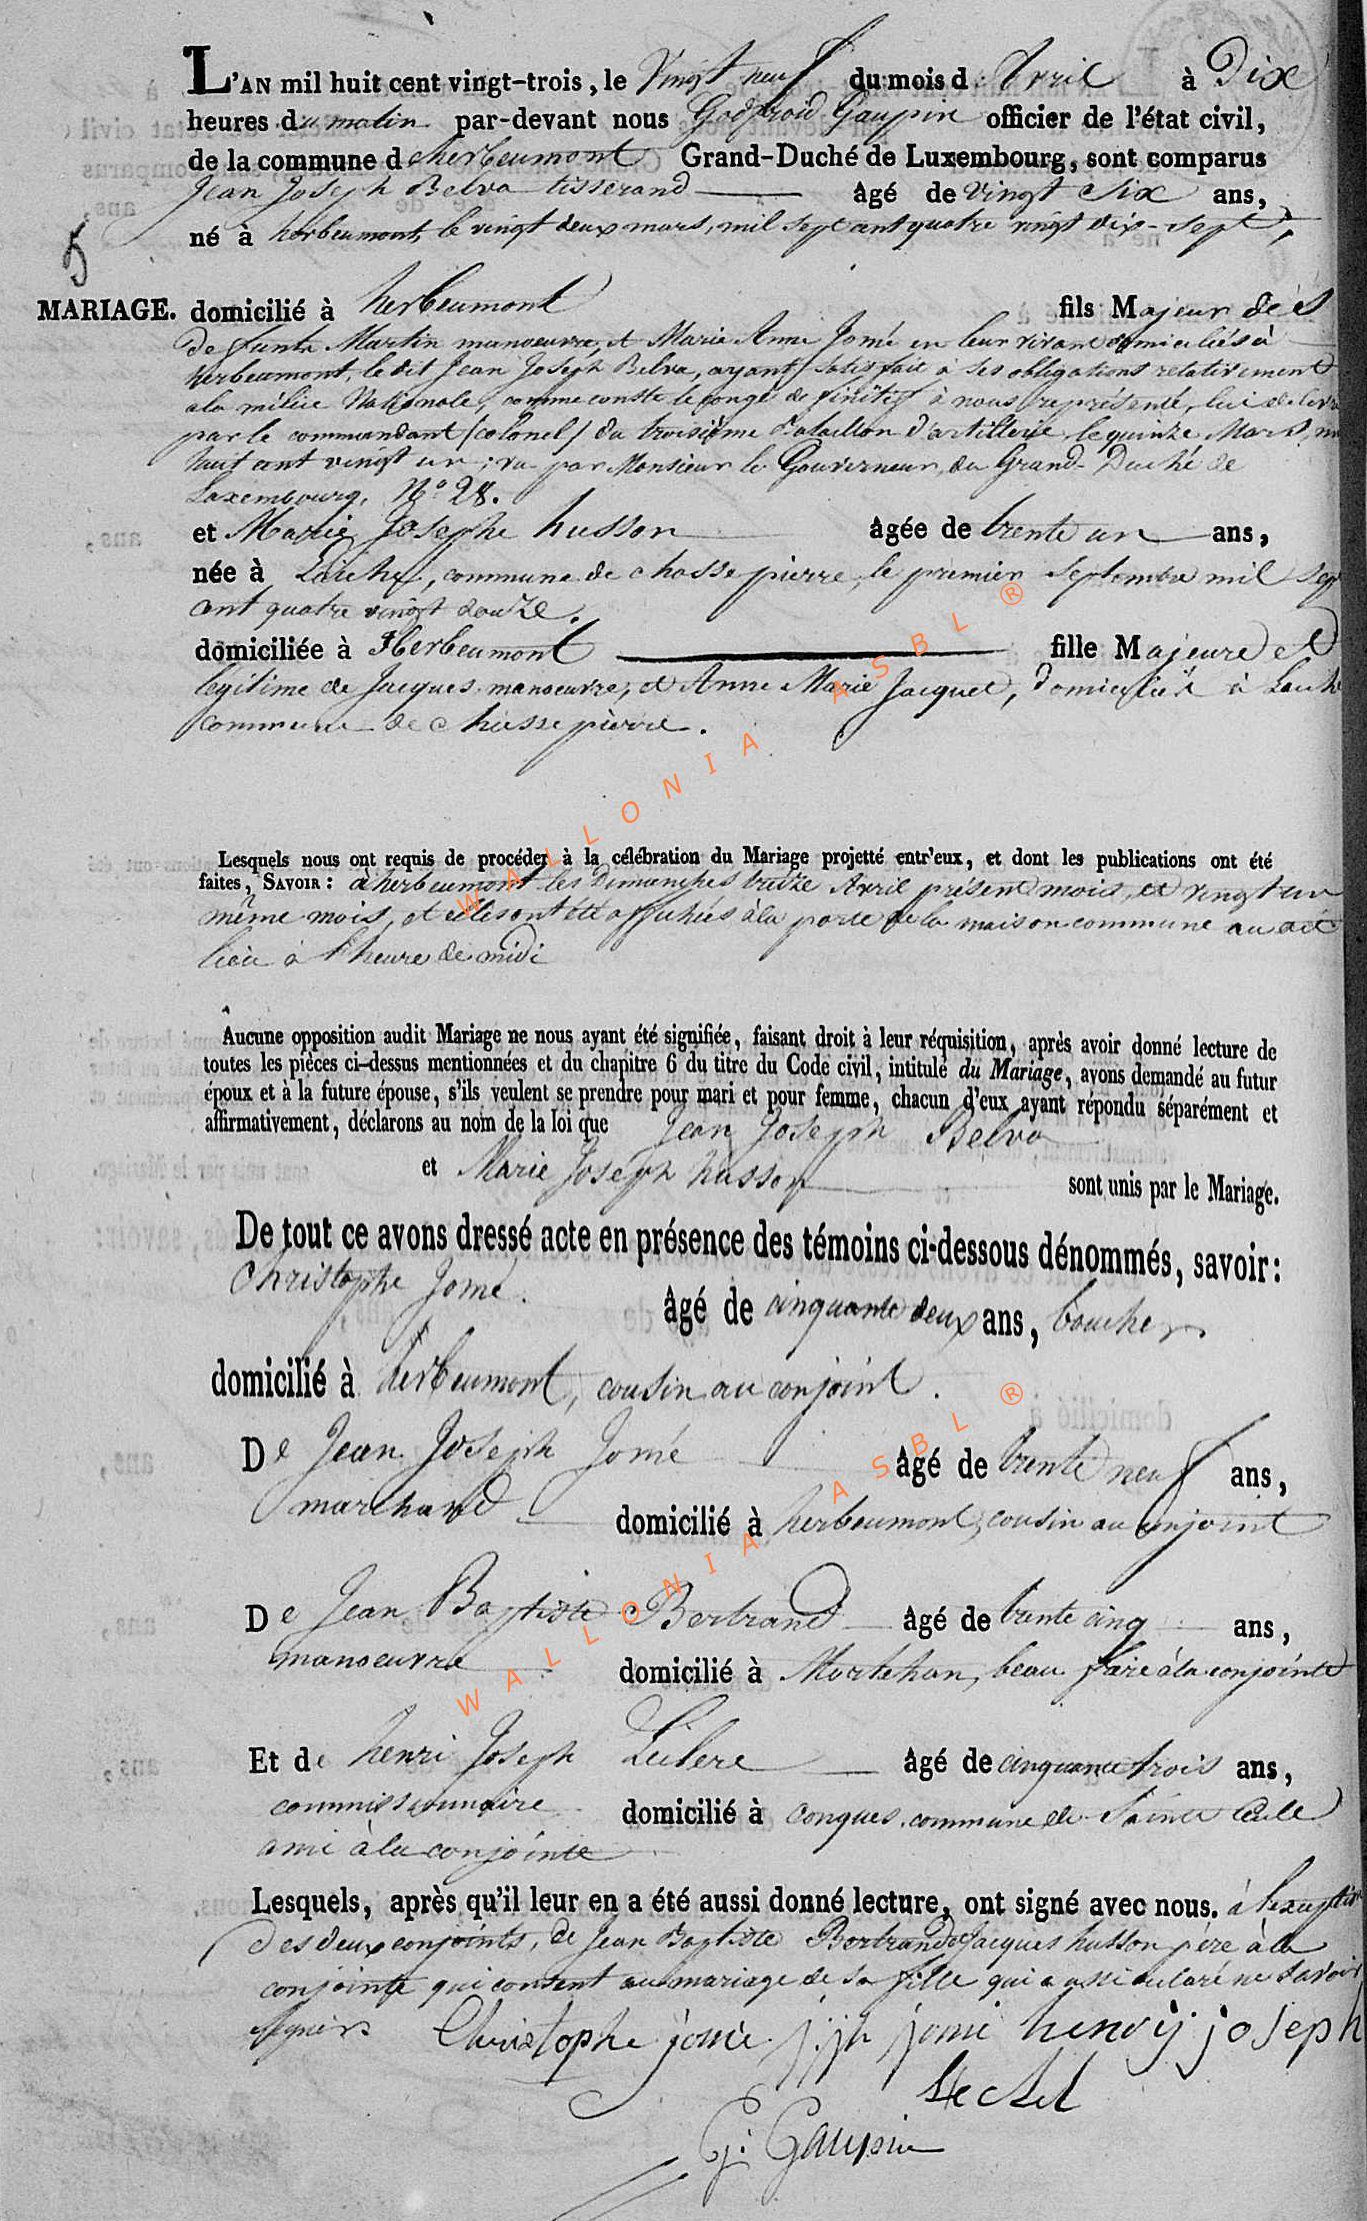 L'AN mil huit cent vingt-trois, le Vingt neuf du mois d Avril à Dix
heures du matin par-devant nous Godfroid Gaupin officier de l'état civil,
de la commune d'herbeumont Grand-Duché de Luxembourg, sont comparus
Jean Joseph Belva tisserand âgé de vingt Six ans,
né à herbeumont, le vingt deux mars, mil sept cent quatre vingt dix-sept,
5
MARIAGE. domicilié à herbeumont fils Majeur de
de Martin manoeuvre, et Marie Anne Jomé en leur vivant domiciliés à
herbeumont, ledit Jean Joseph Belva, ayant satisfait à ses obligations relativement
a la milice Nationale, comme conste le congé définitif à nous représenté, lui délivré
par le commandant (colonel) du troisième Bataillon d'artillerie le quinze Mars, mil
huit cent vingt un; vu par Monsieur le Gouverneur du Grand-Duché de
Luxembourg, N° 28.
et Marie Josephe husson âgée de trente un ans,
née à Laiche, commune de chassepierre, le premier Septembre mil sept
cent quatre vingt douze.
domiciliée à Herbeumont fille Majeure et
légitime de Jacques manoeuvre, et Anne Marie Jacquet, domiciliés à Laiche
commune de chassepierre.
Lesquels nous ont requis de procéder à la célébration du Mariage projetté entr'eux, et dont les publications ont été
faites, SAVOIR : à herbeumont les Dimanches treize Avril présent mois, et vingt un
même mois, et elles ont été affichées à la porte de la maison commune au dit
lieu à l'heure de midi
Aucune opposition audit Mariage ne nous ayant été signifiée, faisant droit à leur réquisition, après avoir donné lecture de
toutes les pièces ci-dessus mentionnées et du chapitre 6 du titre du Code civil, intitulé du Mariage, avons demandé au futur
époux et à la future épouse, s'ils veulent se prendre pour mari et pour femme, chacun d'eux ayant répondu séparément et
affirmativement, déclarons au nom de la loi que Jean Joseph Belva
et Marie Joseph husson sont unis par le Mariage.
De tout ce avons dressé acte en présence des témoins ci-dessous dénommés, savoir:
Christophe Jomé. âgé de cinquante deux ans, boucher
domicilié à herbeumont, cousin au conjoint.
De Jean Joseph Jomé âgé de trente neuf ans,
marchand domicilié à herbeumont, cousin au conjoint
De Jean Baptiste Bertrand âgé de trente cinq ans,
manoeuvre domicilié à Mortehan, beau frère à la conjointe
Et de henri Joseph âgé de cinquante trois ans,
commissionnaire domicilié à conques, commune de Sainte Cecile
ami à la conjointe
Lesquels, après qu'il leur en a été aussi donné lecture, ont signé avec nous. à l'exception
des deux conjoints, de Jean Baptiste Bertrand et Jacques husson père à la
conjointe qui consent au mariage de sa fille qui a aussi déclaré ne savoir
signer.
Christophe jomé j:jh jomé henry joseph
G: Gaupin
WALLONIA ASBL ®
WALLONIA ASBL ®